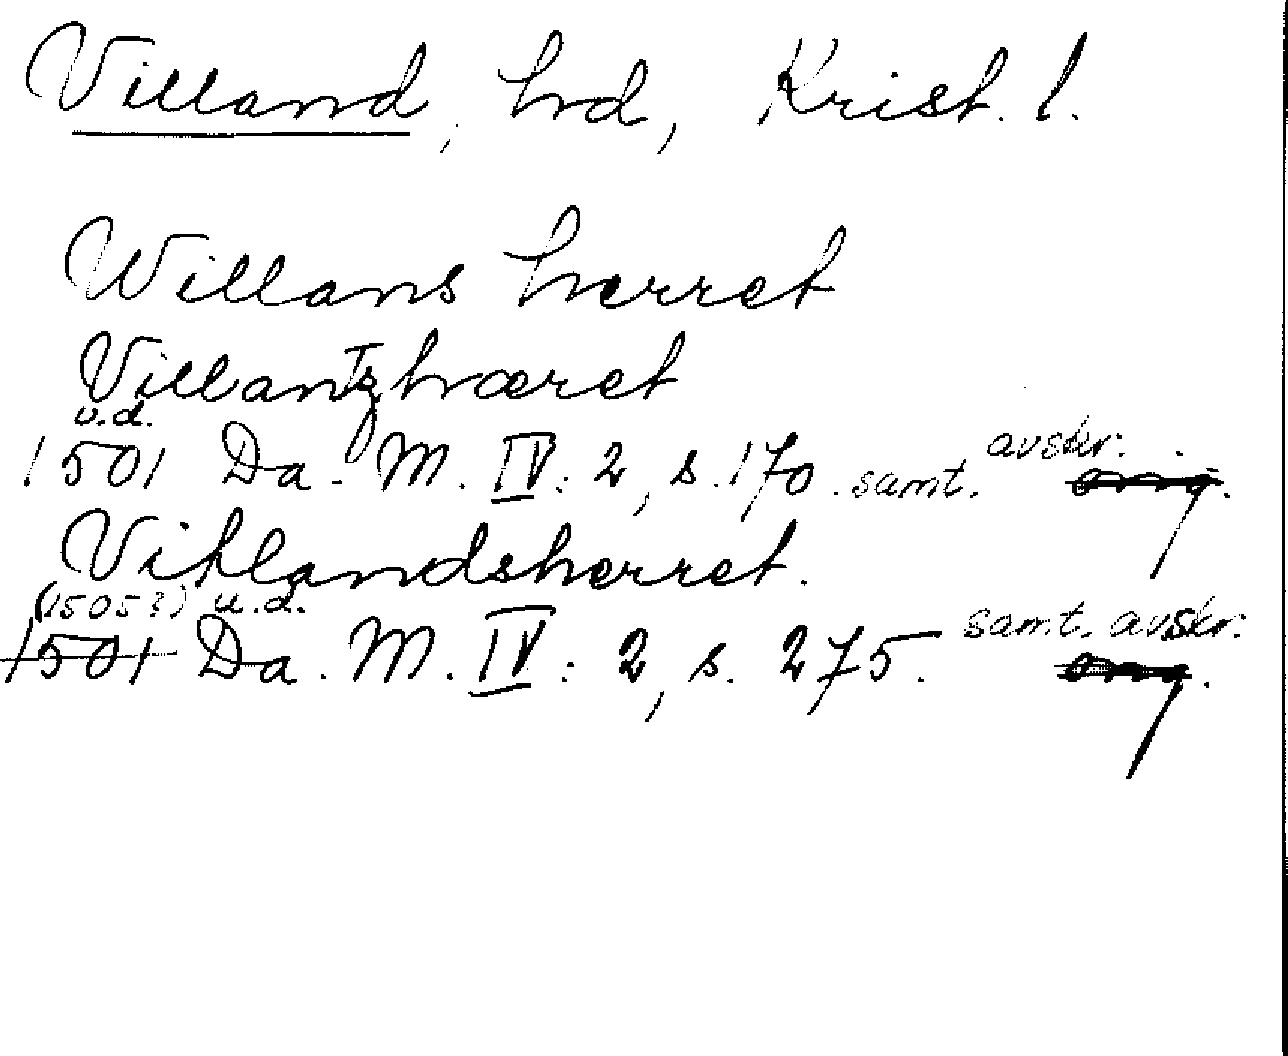 Villand, hd, Krist. l.
Willans herret
Villantzhæret
u.d.
1501 Da. M. IV: 2, s. 170. samt. avskr. orig.
Vitlandsherret.
(1505?) u.d.
1501 Da. M. IV: 2, s. 275. samt. avskr. orig.